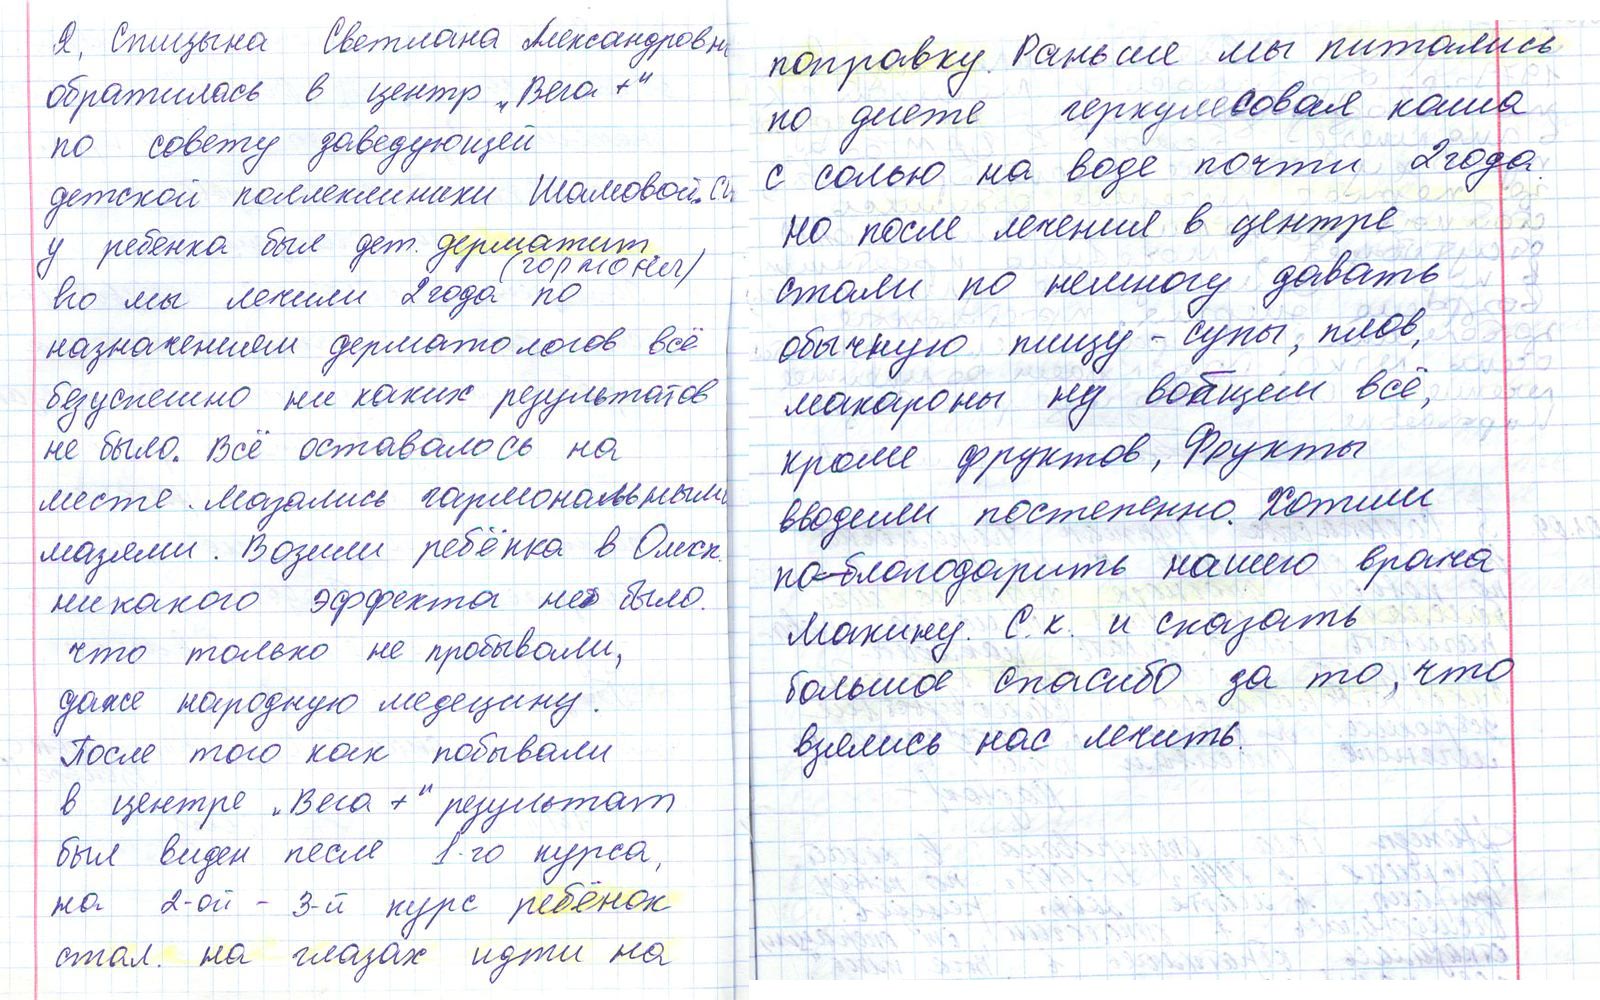 Я, Спицына Светлана Александровна
обратилась в центр "Вега +"
по совету заведующей
детской поллеклиники Шамовой.
у ребенка был дет. дерматит
(гормоны)
Его мы лечили 2 года по
назначениям дерматологов всё
безуспешно ни каких результатов
не было. Всё оставалось на
месте. Мазались гармональными
мазями. Возили ребёнка в Омск.
никакого эффекта не было.
что только не пробывали,
даже народную медецину.
После того как побывали
в центре "Вега +" результат
был виден после 1-го курса,
на 2-ой - 3-й курс ребёнок
стал. на глазах идти на
поправку. Раньше мы питались
по диете геркулесовая каша
с солью на воде почти 2 года.
Но после лечения в центре
стали по немногу давать
обычную пищу - супы, плов,
макароны ну вобщем всё,
кроме фруктов, Фрукты
вводили постепенно. Хотим
поблогодарить нашего врача
Макину. С.К. и сказать
большое спасибо за то, что
взялись нас лечить.